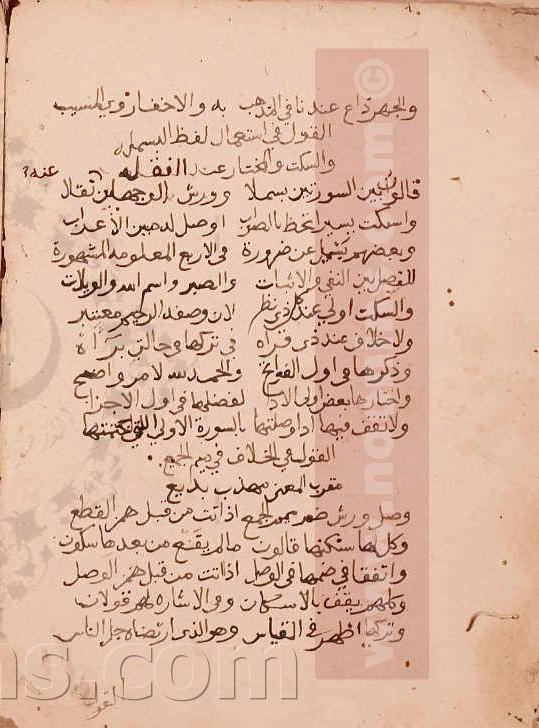 والجهر ذاع عندنا في المذهب به والاخفا روى المسيب
القول في استعمال لفظ البسمله
والسكت والمختار عند النقله
قالون بين السورتين بسملا وورش الوجهين عنه نقلا
واسكت يسيرا تحظ بالصواب او صل له مبين الاعراب
وبعضهم بسمل عن ضرورة في الاربع المعلومة المشهورة
للفصل بين النفي والاثبات والصبر واسم الله والويلات
والسكت اولى عند كل ذي نظر لان وصفه الرحيم معتبر
ولا خلاف عند ذي قراه في تركها في حالتي براة
وذكرها في اول الفواتح والحمد لله لامر واضح
واختارها بعض اولى الادا لفضلها في اول الاجزا
ولا تقف فيها اذا وصلتها بالسورة الاولى التي ختمتها
القول في الخلاف في ميم الجميع
مقرب المعنى مهذب بديع
وصل ورش ضم ميم الجمع اذا اتت من قبل همز القطع
وكلها سكنها قالون ما لم يقع من بعدها سكون
واتفقا في ضمها في الوصل اذا اتت من قبل همز الوصل
وكلهم يقف بالاسكان وفي الاشارة لهم قولان
وتركها اظهر في القياس وهو الذي ارتضاه جل الناس
القول
www.noormags.com
ns.com